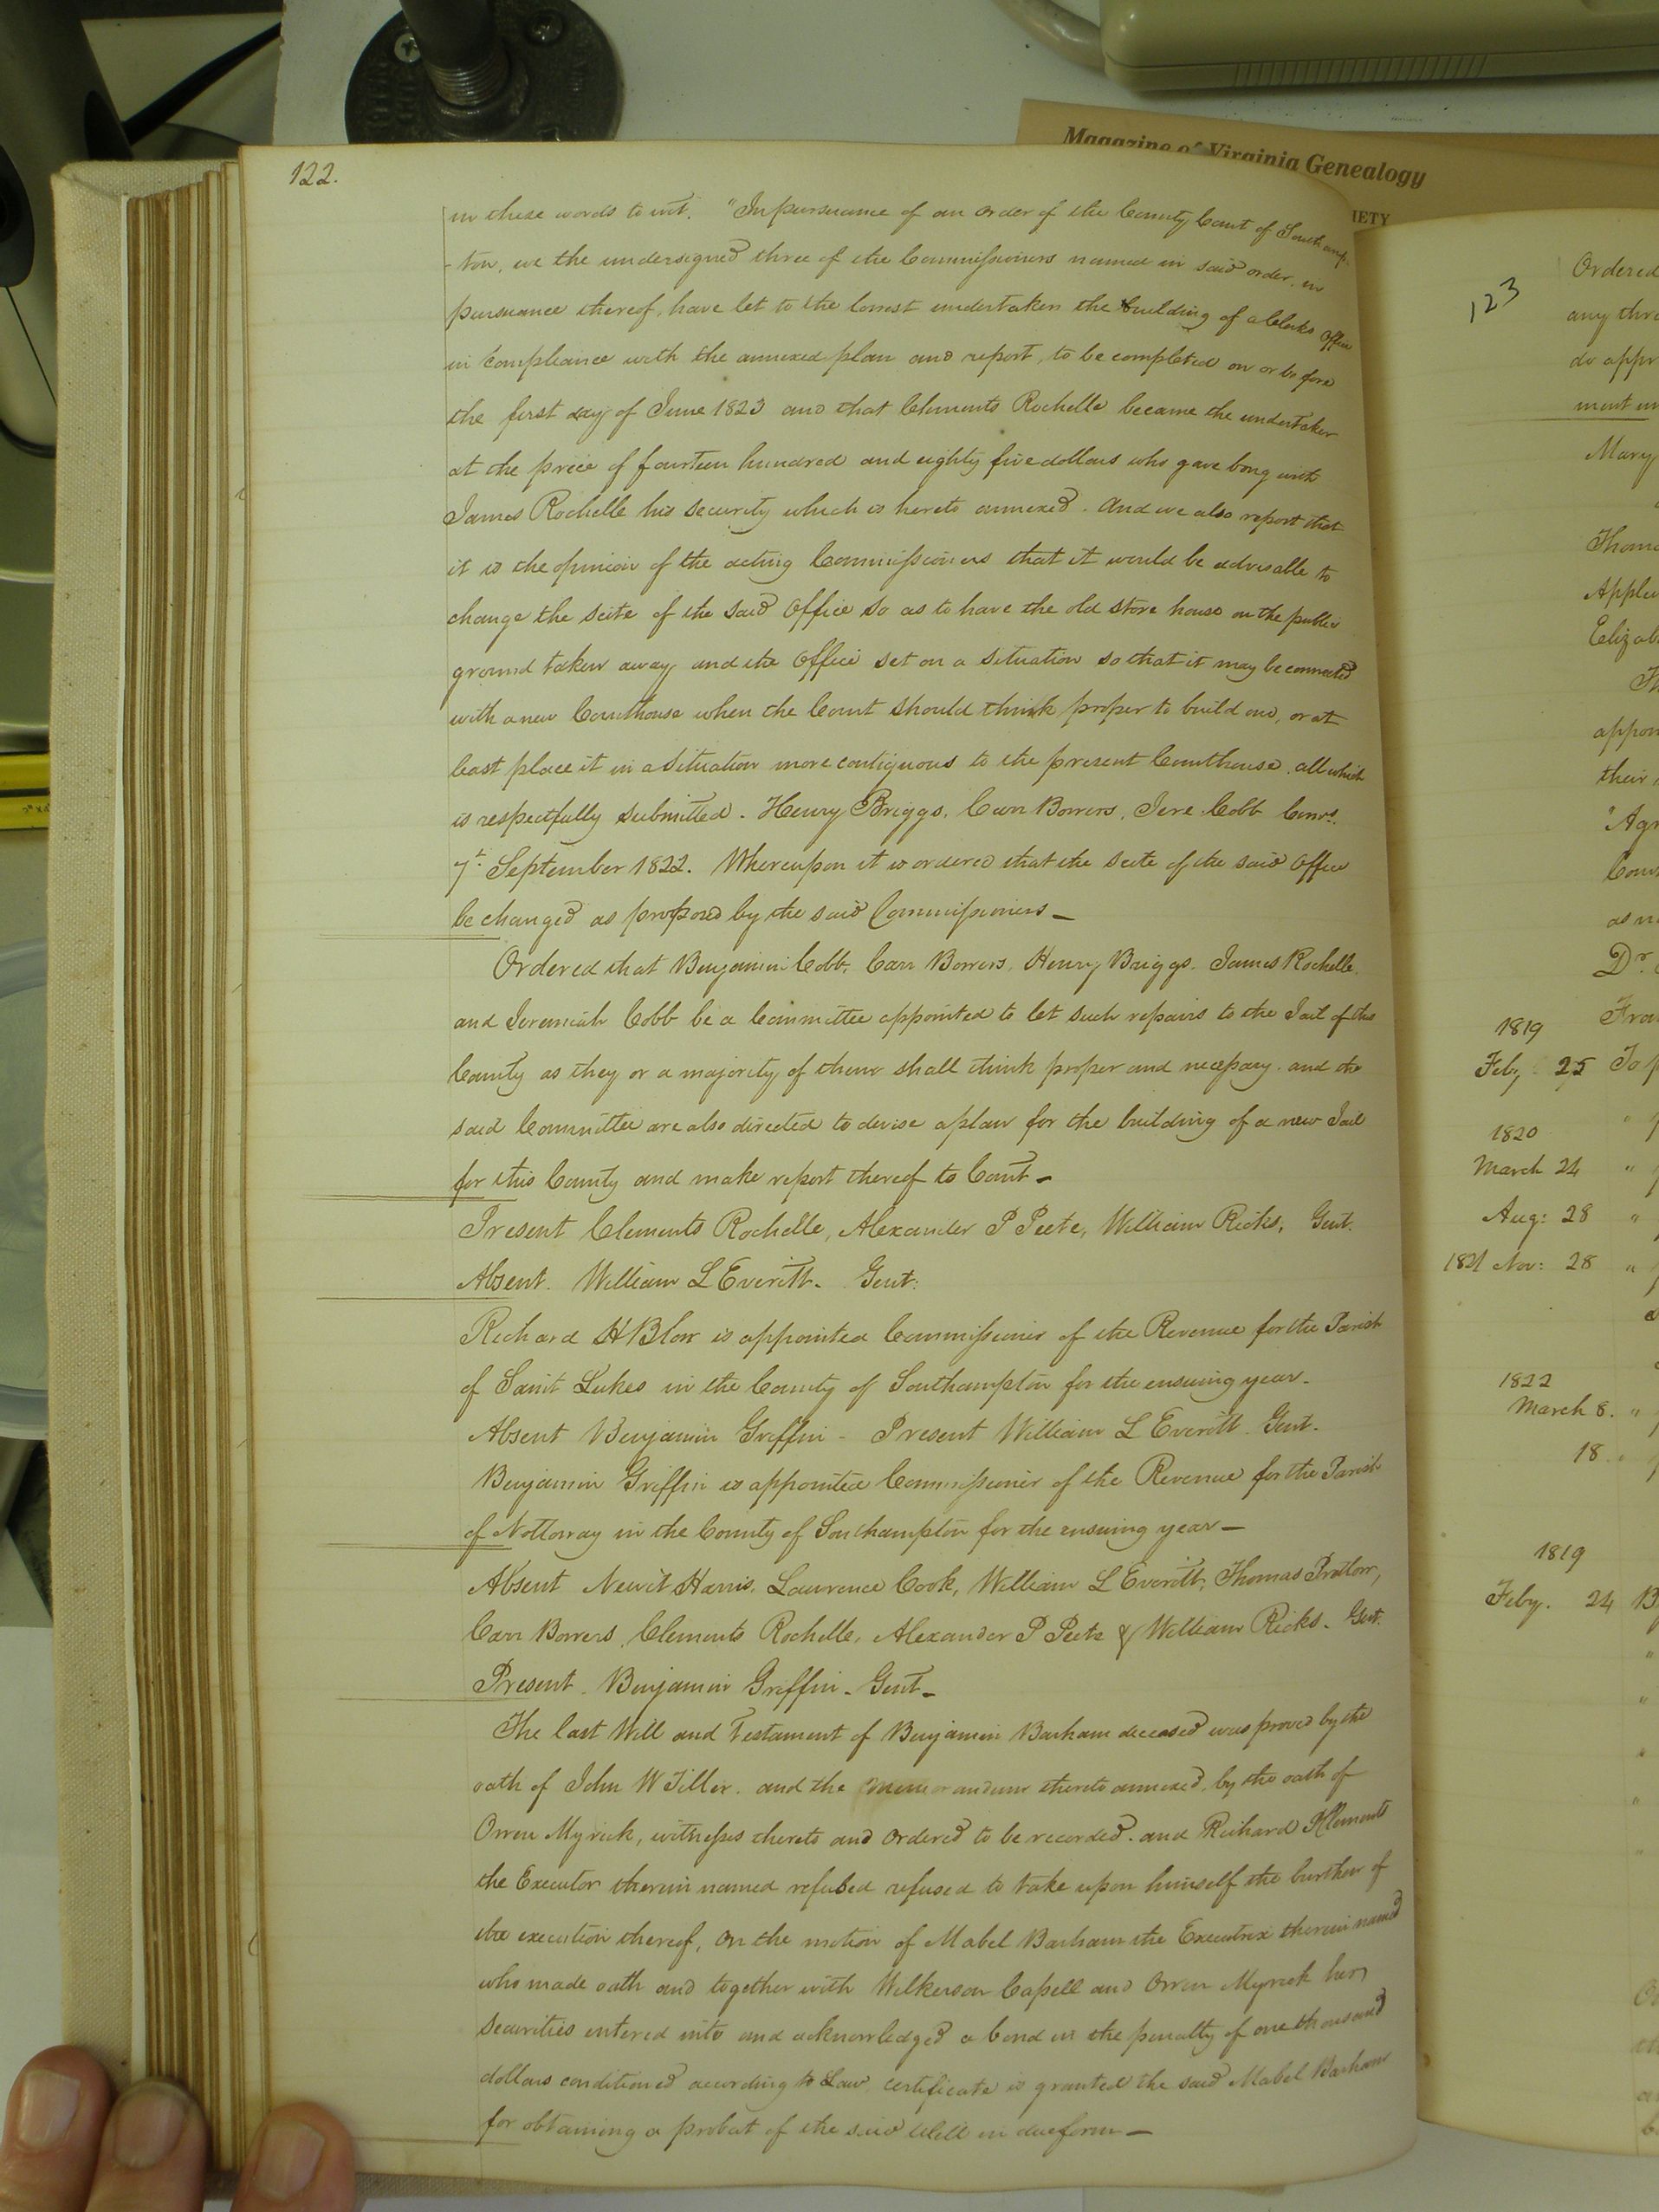 Magazine of Virginia Genealogy
IETY
122.
in these words to wit. "In pursuance of an order of the County Court of Southamp
-ton, we the undersigned three of the Commissioners named in said order, in
pursuance thereof, have let to the lowest undertaker the building of a Clerks Office
in compliance with the annexed plan and report, to be completed on or before
the first day of June 1823 and that Clements Rochelle became the undertaker
at the price of fourteen hundred and eighty five dollars who gave bong with
James Rochelle his security which is hereto annexed. And we also report that
it is the opinion of the acting Commissioners that it would be advisable to
change the scite of the said Office so as to have the old store house on the public
ground taken away and the Office set on a situation so that it may be connected
with a new Courthouse when the Court should think proper to build one, or at
least place it in a situation more contiguous to the present Courthouse, all which
is respectfully submitted. Henry Briggs, Carr Bowers, Jere Cobb Comrs.
7t. September 1822. Whereupon it is ordered that the scite of the said Office
be changed as proposed by the said Commissioners —
Ordered that Benjamin Cobb, Carr Bowers, Henry Briggs, James Rochelle,
and Jeremiah Cobb be a Committee appointed to let such repairs to the Jail of this
County as they or a majority of them shall think proper and necessary. and the
said Committee are also directed to devise a plan for the building of a new Jail
for this County and make report thereof to Court —
Present Clements Rochelle, Alexander P Peete, William Ricks, Gent.
Absent. William L Everitt. Gent:
Richard H Blow is appointed Commissioner of the Revenue for the Parish
of Saint Lukes in the County of Southampton for the ensuing year.
Absent Benjamin Griffin - Present William L Everitt Gent.
Benjamin Griffin is appointed Commissioner of the Revenue for the Parish
of Nottoway in the County of Southampton for the ensuing year —
Absent Newit Harris, Lawrence Cook, William L Everitt, Thomas Pretlow,
Carr Bowers, Clements Rochelle, Alexander P Peete & William Ricks. Gent.
Present. Benjamin Griffin - Gent —
The last Will and Testament of Benjamin Barham deceased was proved by the
oath of John W Tiller. and the memorandum thereto annexed, by the oath of
Orren Myrick, witnesses thereto and ordered to be recorded. and Richard Clements
the Executor therein named refused refused to take upon himself the burthen of
the execution thereof, On the motion of Mabel Barham the Executrix therein named
who made oath and together with Wilkerson Capell and Orren Myrick her
securities entered into and acknowledged a bond in the penalty of one thousand
dollars conditioned according to Law, certificate is granted the said Mabel Barham
for obtaining a probat of the said Will in due form —
123
Ordered
any thr
do appr
ment
Mary
Thoma
Elizab
appoin
their
"Agr
Cour
Dr.
1819
Feby 25 To p
1820
March 24 "
Aug: 28 "
1821 Nov: 28 "
1822
March 8. "
18
1819
Feby. 24 B